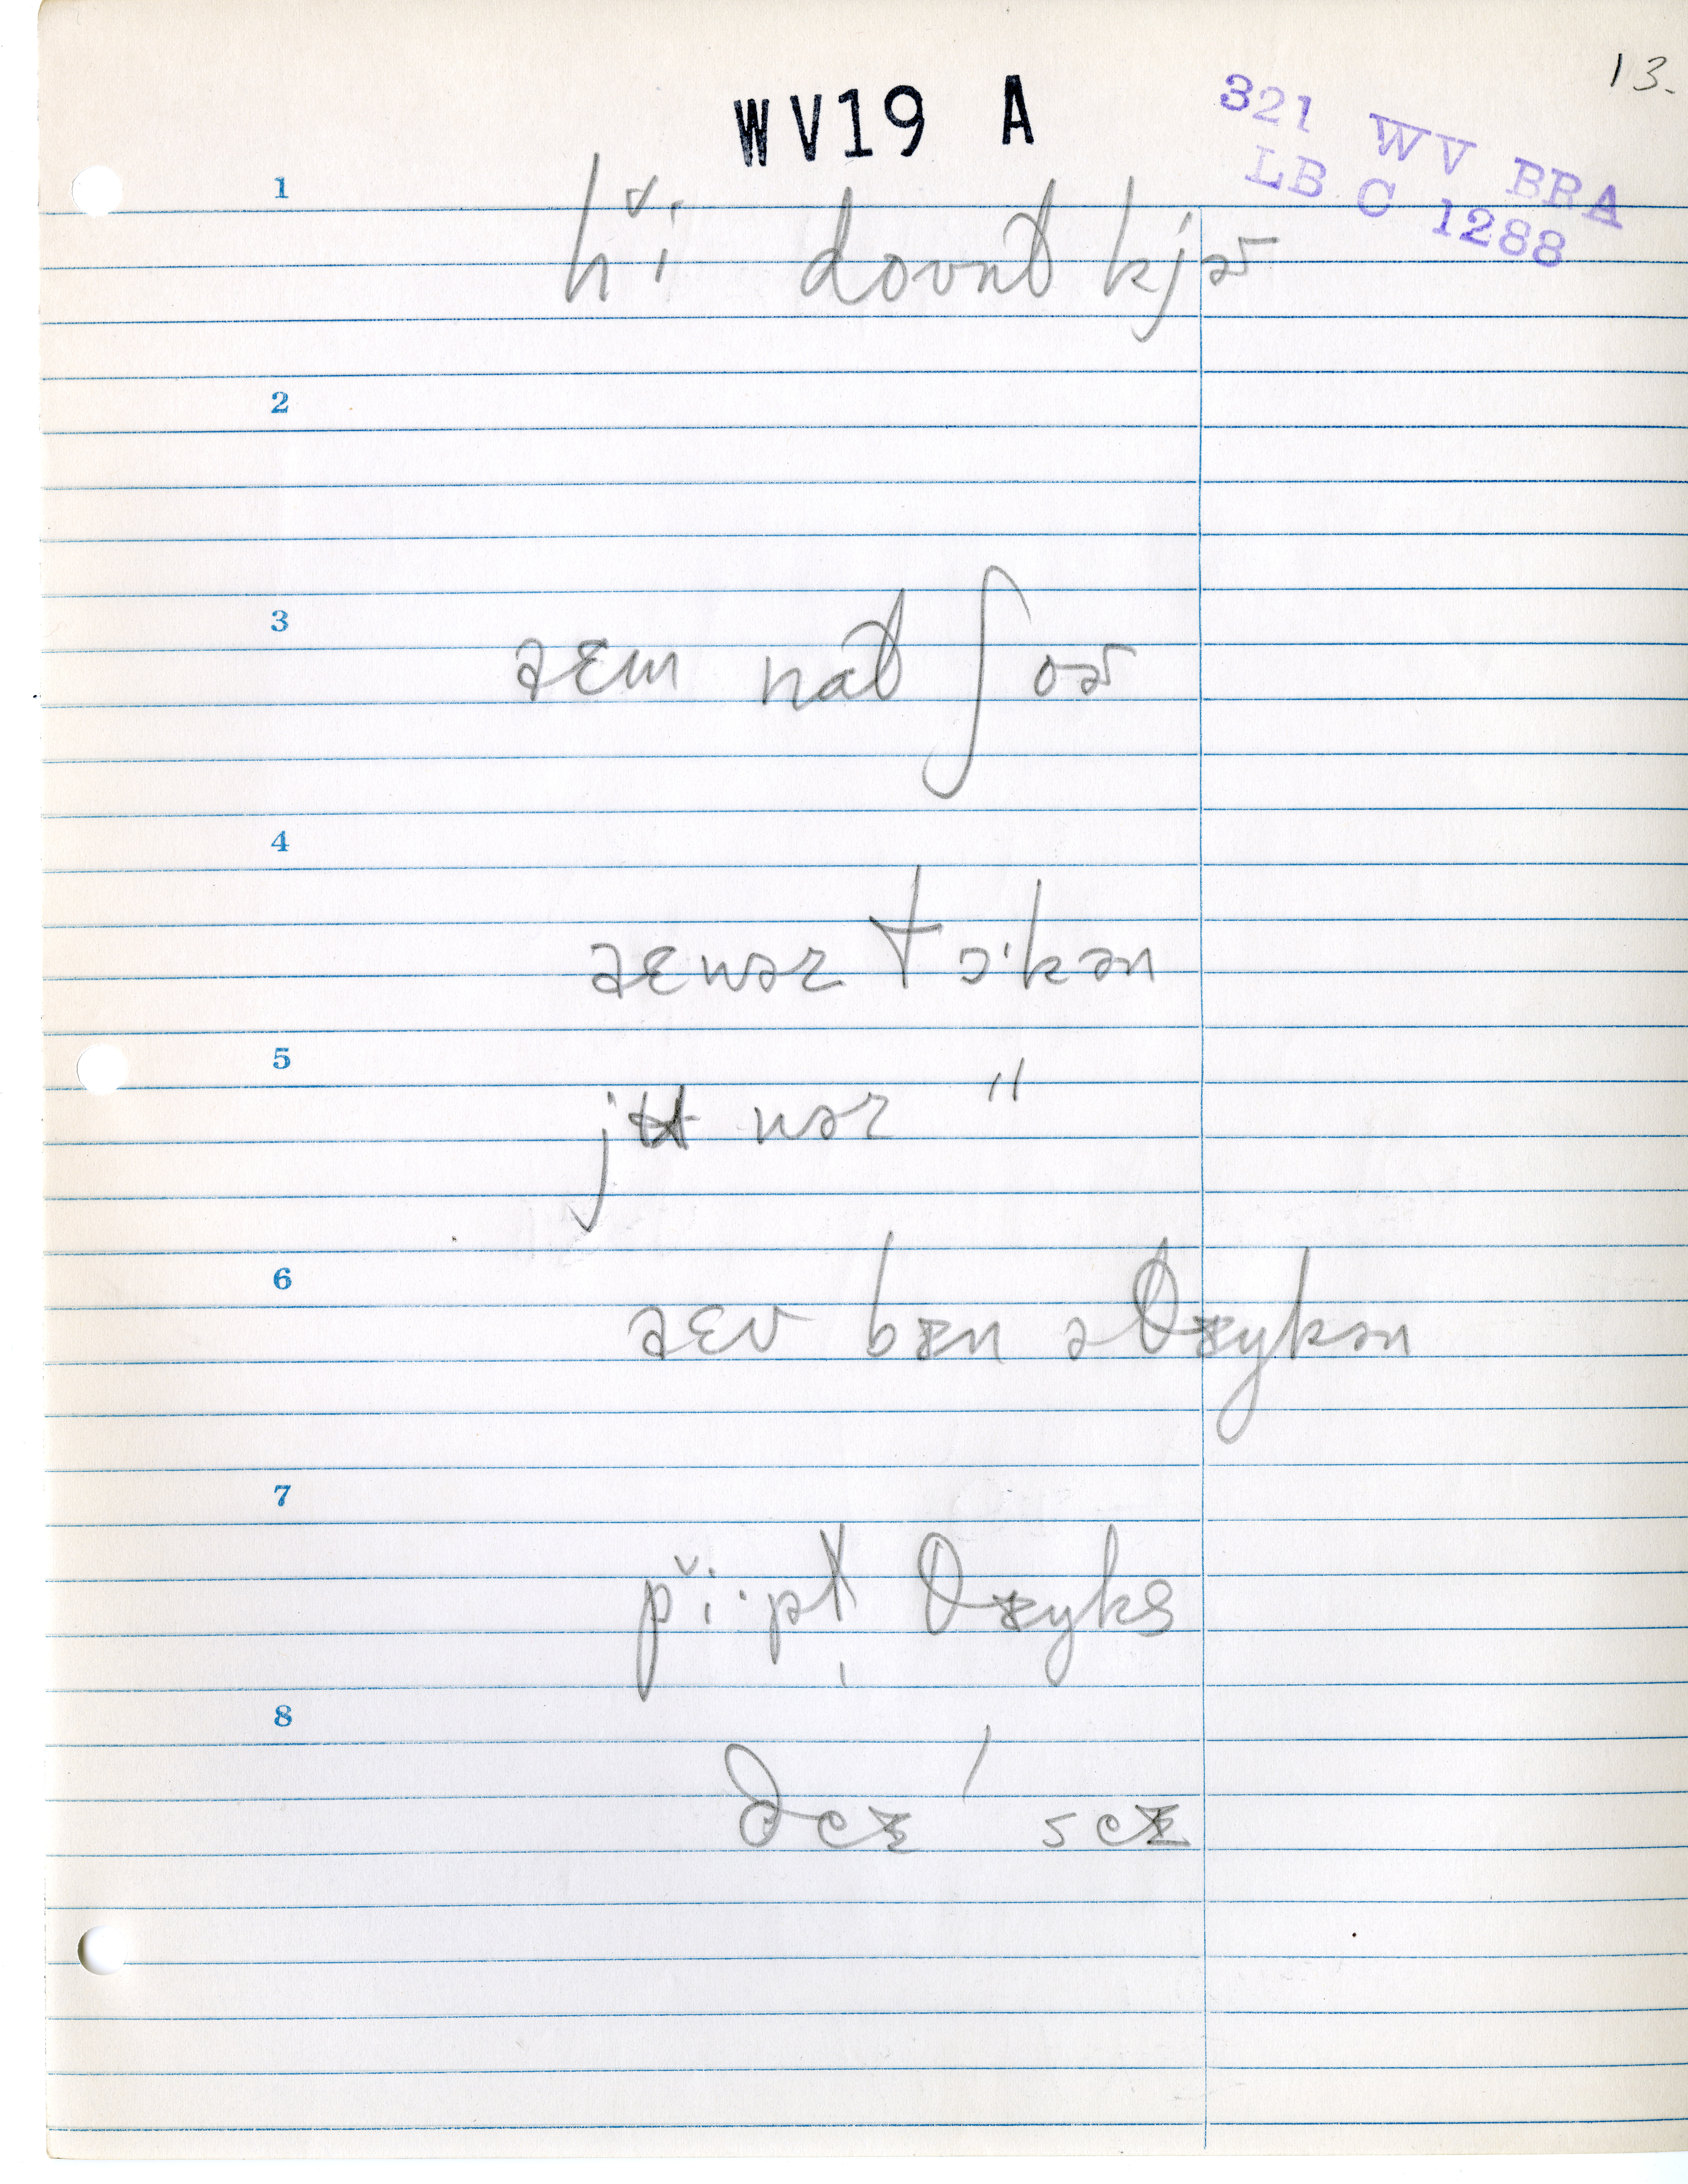 13.
WV19 A
321 WV BRA
LB C 1288
1
hɪ̆i doʊnt̬ kjɚ
2
3
aɛm nat̬ ʃoɚ
4
aɛ wəz tɔ'kən
5
jɨʉ wəz "
6
aɛv bɪn ə θɪŋkən
7
pɪ̆i·pɫ̩ θɪŋks
8
ðeɪ / seɪ